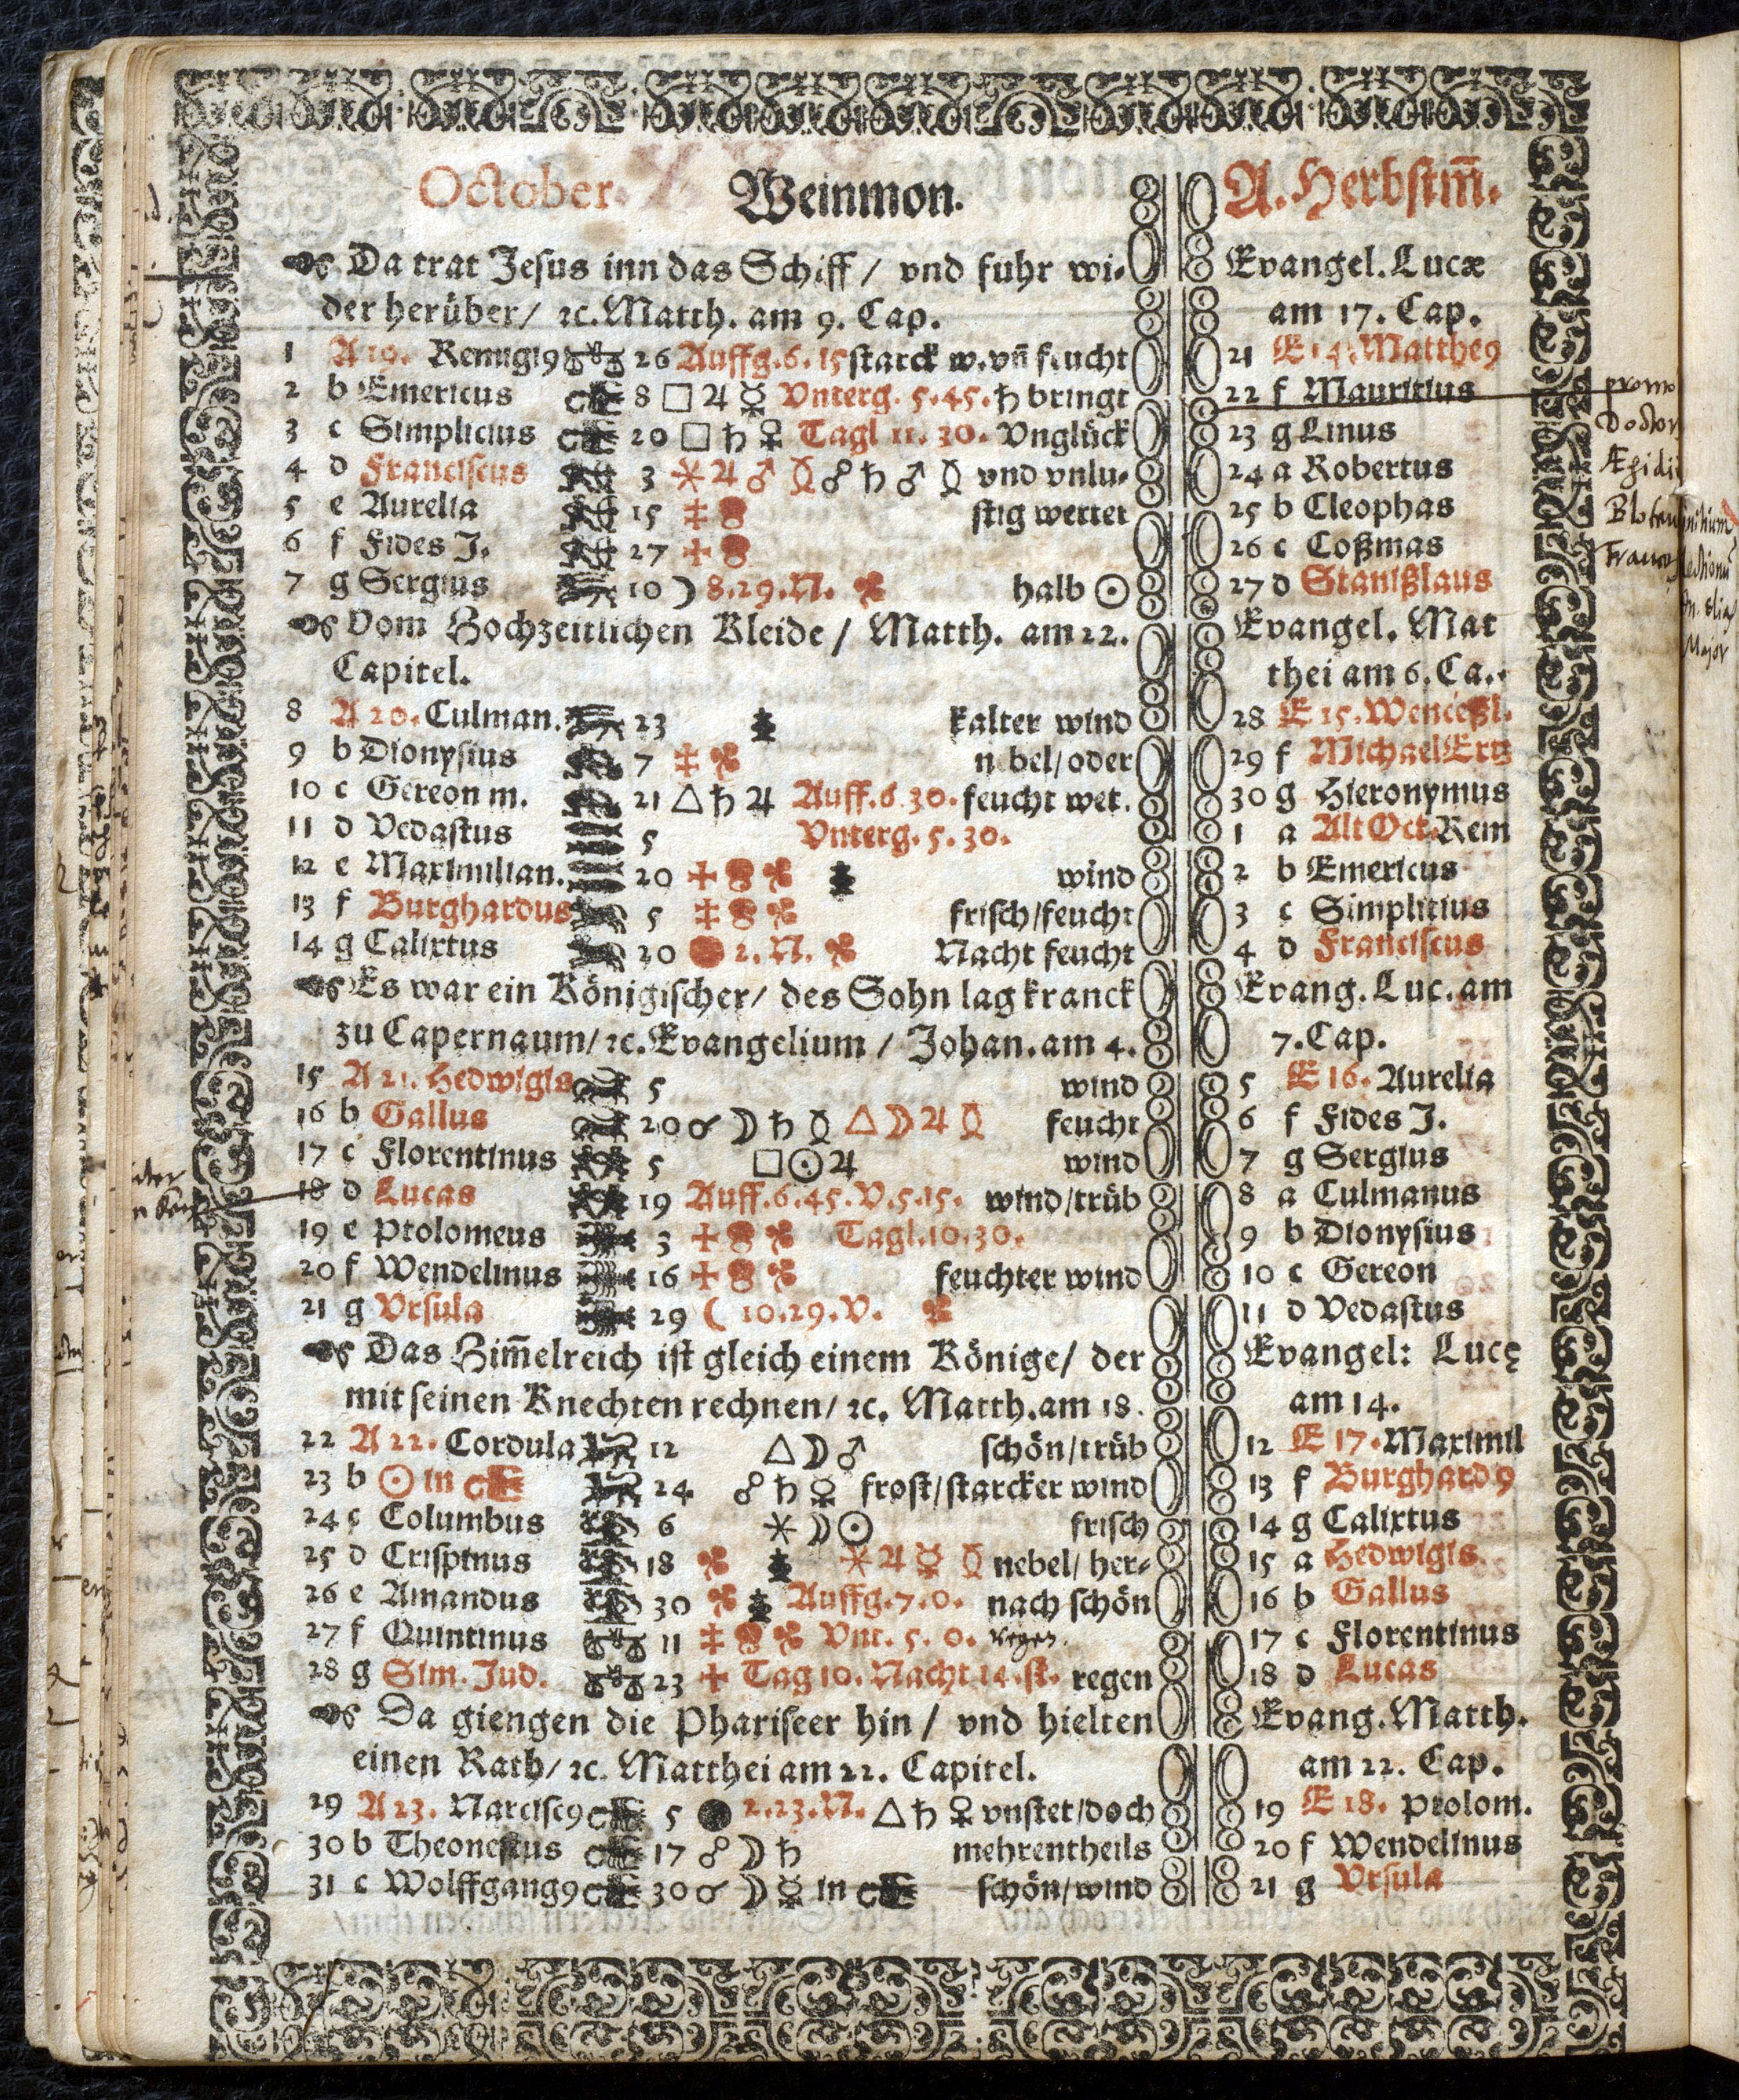 October. Weinmon. A. Herbstm̄.
Da trat Jesus inn das Schiff / vnd fuhr wi- Evangel. Lucæ
der herüber / ꝛc. Matth. am 9. Cap. am 17. Cap.
1 A 19. Remigi9 26 Auffg. 6. 15 starck w. vñ feucht 21 E 14. Matthe9
2 b Emericus 8 □ ♃ ☿ Vnterg. 5. 45. ♄ bringt 22 f Mauritius
3 c Simplicius 20 □ ♄ ♀ Tagl 11. 30. Vnglück 23 g Linus
4 d Franciscus 3 ⚹ ♃ ♂ ☍ ♄ ♂ vnd vnlu- 24 a Robertus
5 e Aurelia 15 stig wetter 25 b Cleophas
6 f Fides J. 27 26 c Coßmas
7 g Sergius 10 ☽ 8. 29. N. halb ☉ 27 d Stanißlaus
Vom Hochzeitlichen Kleide / Matth. am 22. Evangel. Mat
Capitel. thei am 6. Ca.
8 A 20. Culman. 23 kalter wind 28 E 15. Wenceßl.
9 b Dionysius 7 nebel / oder 29 f Michael Ertz
10 c Gereon m. 21 △ ♄ ♃ Auff. 6 30. feucht wet. 30 g Hieronymus
11 d Vedastus 5 Vnterg. 5. 30. 1 a Alt Oct. Rem
12 e Maximilian. 20 wind 2 b Emericus
13 f Burghardus 5 frisch / feucht 3 c Simplitius
14 g Calixtus 20 2. N. Nacht feucht 4 d Franciscus
Es war ein Königischer / des Sohn lag kranck Evang. Luc. am
zu Capernaum / ꝛc. Evangelium / Johan. am 4. 7. Cap.
15 A 21. Hedwigis 5 wind 5 E 16. Aurelia
16 b Gallus 20 ☌ ☽ ♄ △ ☽ ♃ feucht 6 f Fides J.
17 c Florentinus 5 □ ☉ ♃ wind 7 g Sergius
18 d Lucas 19 Auff. 6. 45. V. 5. 15. wind / trüb 8 a Culmanus
19 e Ptolomeus 3 Tagl. 10. 30. 9 b Dionysius
20 f Wendelinus 16 feuchter wind 10 c Gereon
21 g Vrsula 29 ☾ 10. 29. V. 11 d Vedastus
Das Himm̄elreich ist gleich einem Könige / der Evangel: Lucę
mit seinen Knechten rechnen / ꝛc. Matth. am 18. am 14.
22 A 22. Cordula 12 △ ☽ ♂ schön / trüb 12 E 17. Maximil
23 b ☉ in 24 ☍ ♄ ☿ frost / starcker wind 13 f Burghard9
24 c Columbus 6 ⚹ ☽ ☉ frisch 14 g Calixtus
25 d Crispinus 18 ⚹ ♃ ☿ nebel / her- 15 a Hedwigis
26 e Amandus 30 Auffg. 7. 0. nach schön 16 b Gallus
27 f Quintinus 11 Vnt. 5. 0. Regen. 17 c Florentinus
28 g Sim. Jud. 23 Tag 10. Nacht 14. st. regen 18 d Lucas
Da giengen die Phariseer hin / vnd hielten Evang. Matth.
einen Rath / ꝛc. Matthei am 22. Capitel. am 22. Cap.
29 A 23. Narcisc9 5 2. 23. N. △ ♄ ♀ vnstet / doch 19 E 18. Ptolom.
30 b Theonestus 17 ☍ ☽ ♄ mehrentheils 20 f Wendelinus
31 c Wolffgang9 30 ☌ ☽ ☿ in schön / wind 21 g Vrsula